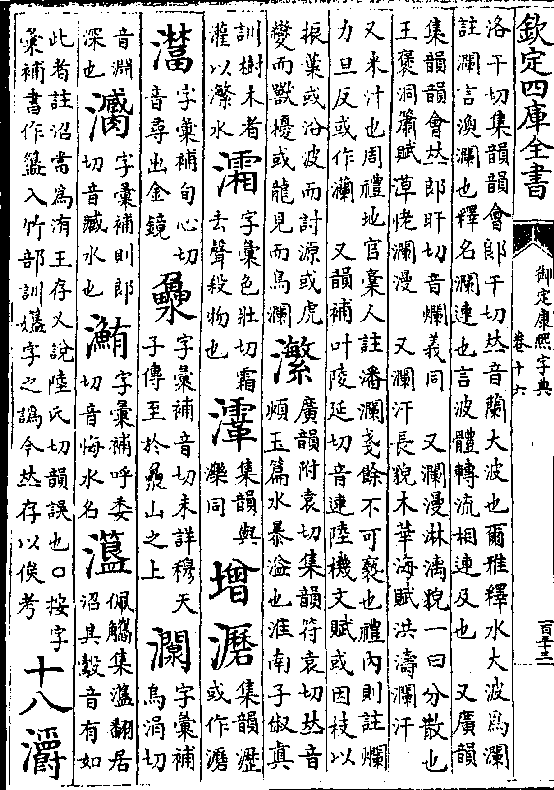 欽定四庫全書
御定康熙字典
卷十六
洛干切集韻韻會郎干切𠀤音蘭大波也爾雅釋水大波為瀾
註瀾言渙瀾也釋名瀾連也言波體轉流相連及也 又廣韻
集韻韻會𠀤郎旰切音爛義同 又瀾漫淋漓貌一曰分散也
王褒洞簫賦㥽恅瀾漫 又瀾汗長貌木華海賦洪濤瀾汗
又米汁也周禮地官槀人註潘瀾戔餘不可褻也禮內則註爛
力旦反或作灡 又韻補叶陵延切音連陸機文賦或因枝以
振葉或沿波而討源或虎
變而獸擾或龍見而鳥瀾 瀿 廣韻附袁切集韻符袁切𠀤音
煩玉篇水暴溢也淮南子俶真
訓樹木者
灌以瀿水 灀 字彙色壯切霜
去聲殺物也 㶅 集韻與
灤同 增 㶍 集韻瀝
或作㶍
灊 字彙補旬心切
音尋出金鏡 灥 字彙補音切未詳穆天
子傳至於灥山之上 瀾 字彙補
烏涓切
音淵
深也 字彙補則郎
切音臧水也 字彙補呼委
切音悔水名 佩觿集薀翻居
沼其毅音有如
此者註沼當為洧王存乂說陸氏切韻誤也○按字
彙補書作簋入竹部訓㜸字之譌今𠀤存以俟考 十八 灂